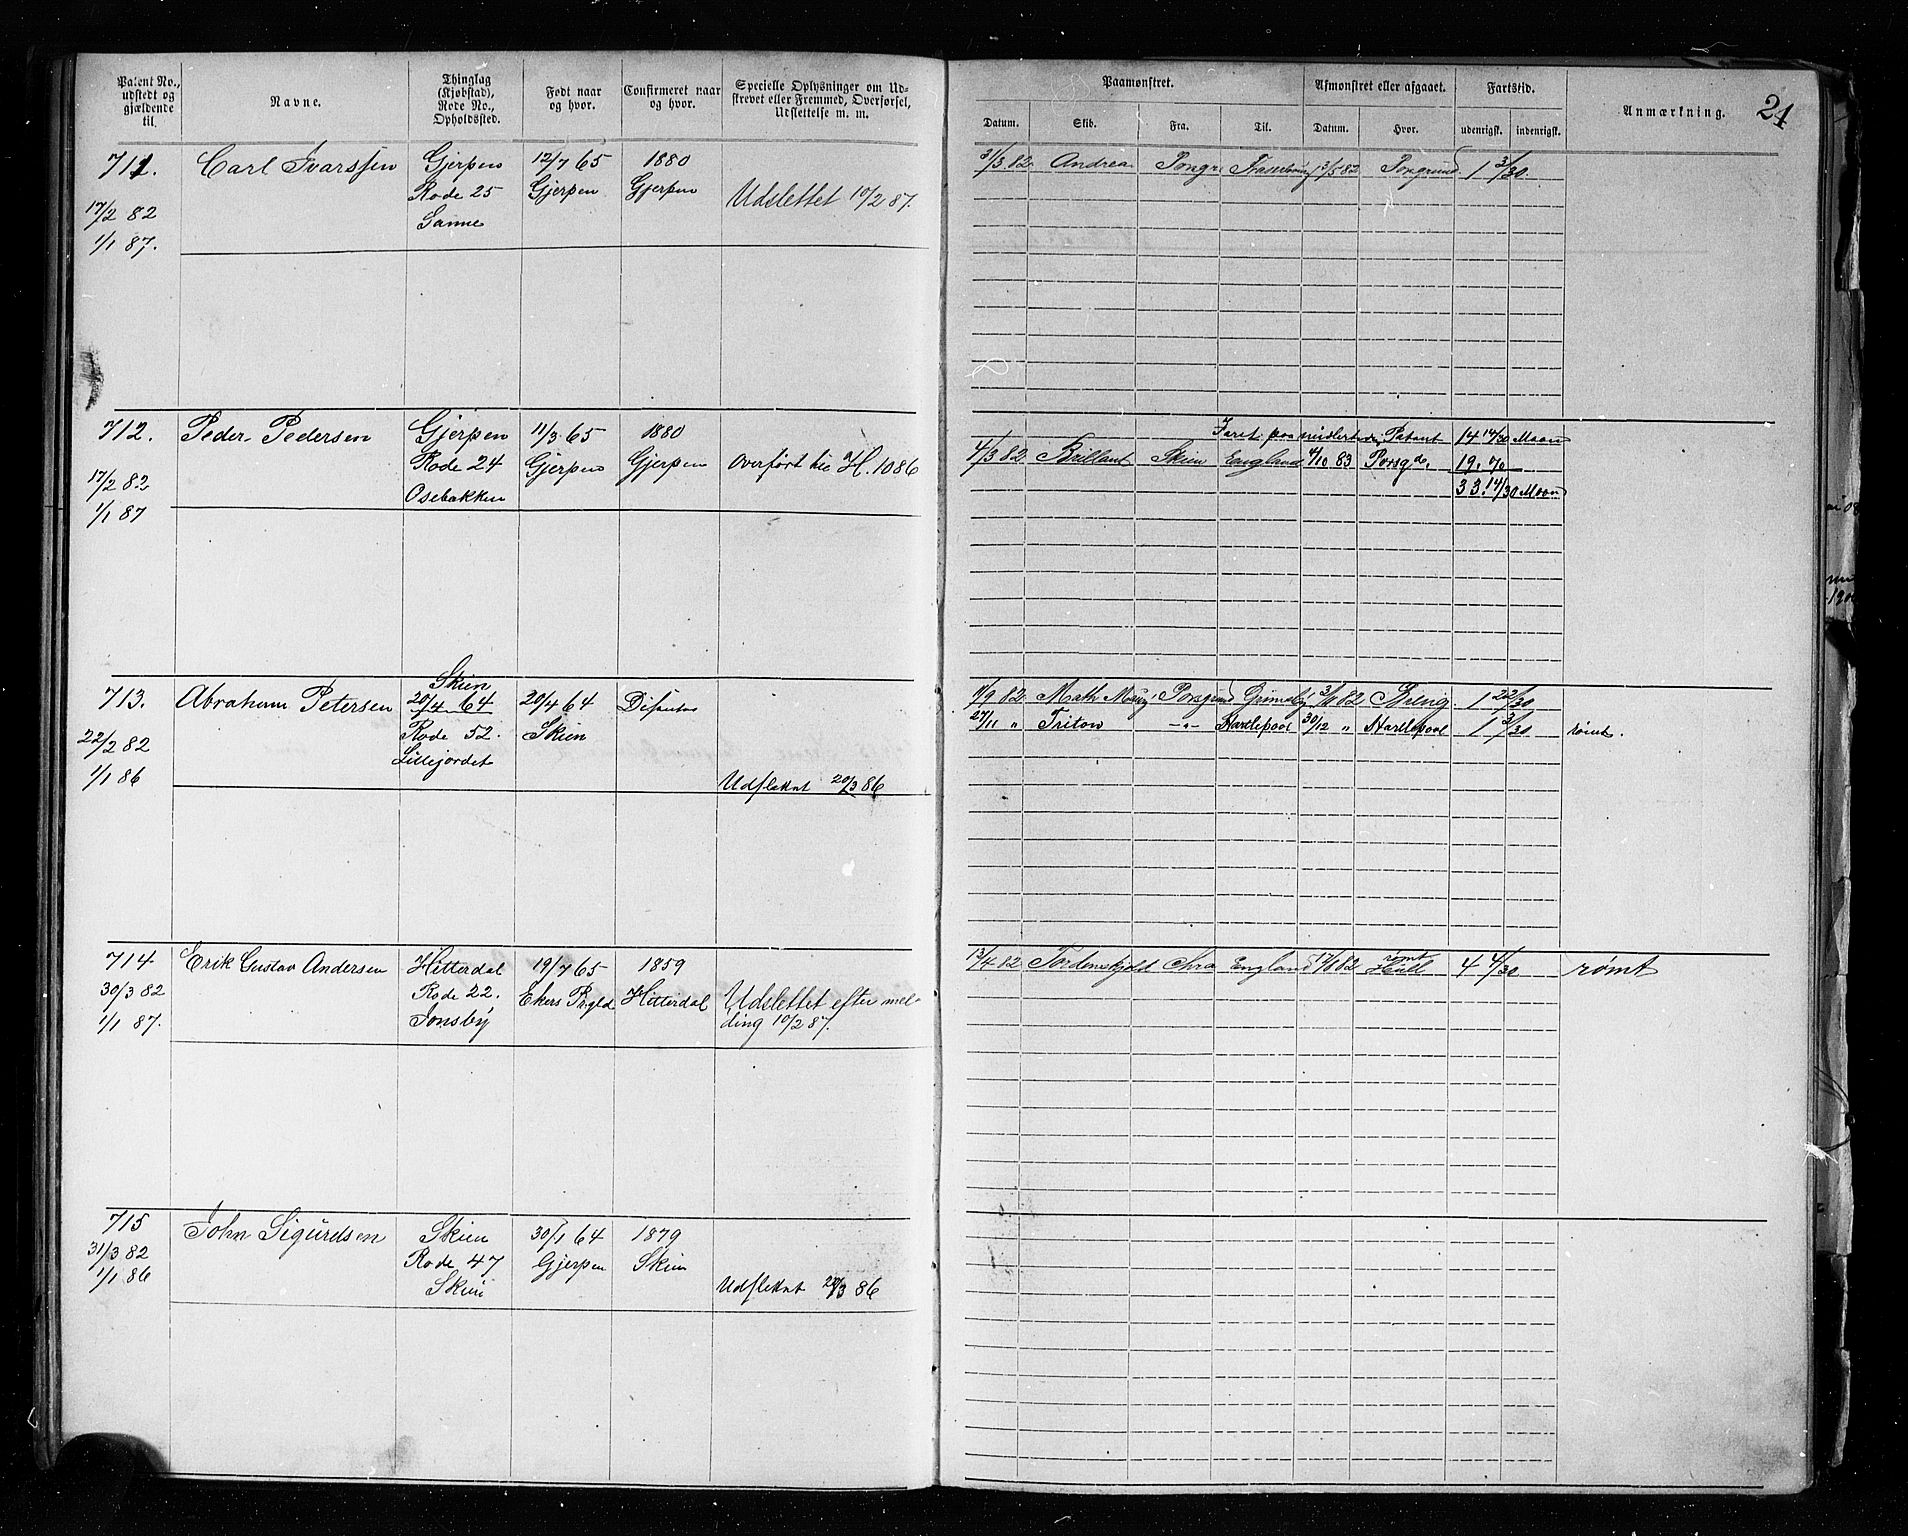 Patent No., udstedt og gjældende til.
Navne.
Thinglag (Kjøbstad), Rode No., Opholdssted.
Født naar og hvor.
Confirmeret naar og hvor.
Specielle Oplysninger om Udstrevet eller Fremmed, Overførsel, Udslettelse m. m.
Paamønstret.
Afmønstret eller afgaaet.
Fartstid.
Anmærkning.
24
Datum. Skib. Fra. Til. Datum. Hvor. udenrigsk. indenrigsk.
711. Carl Ivarssen Gjerpen 12/7 65 1880 31/3 82 Andrea Porsgr 13/5 82 Porsgrund 1 3/30
Rode 25 Gjerpen Gjerpen Udslettet 10/2 87.
17/2 82 Sanne
1/1 87.
712. Peder Pedersen Gjerpen 11/3 65 1880 Faret paa midlertidig Patent 14 14/30 Maan
Rode 24 Gjerpen Gjerpen Overført til H. 1086 4/3 82 Brillant Skien England 4/10 83 Porsgde. 19.
17/2 82 Osebakken 33. 14/30 Maan
1/1 87
Skien
713. Abraham Petersen 20/4 64 20/4 64 Disenter 9/9 82 Math Porsgrund Grimsby 3/11 82 1 22/30
Rode 52. Skien 27/11 " Triton -"- Hartlepool 30/12 " Hartlepool 1 3/30 rømt.
22/2 82 Lillejordet
1/1 86 Udslettet 20/3 86
714 Erik Gustav Andersen Hitterdal 19/7 65 1859 13/4 82 Tordenskjold Kra England 17/8 82 rømt Hull 4 4/30 rømt
30/3 82 Rode 22. Ekers Prgld Hitterdal Udslettet efter mel-
1/1 87. Jonsby ding 10/2 87.
715 John Sigurdsen Skien 30/1 64 1879
31/3 82 Rode 47 Gjerpen Skien
1/1 86 Skien Udslettet 20/3 86